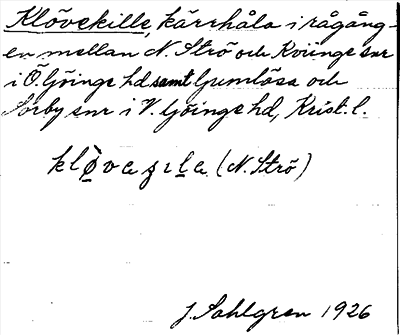 Klövekille, kärrhåla i rågång-
en mellan N. Strö och Kviinge snr
i Ö. Göinge hd samt Gumlösa och
Sörby snr i V. Göinge hd, Krist. l.
(N. Strö)
J. Sahlgren 1926